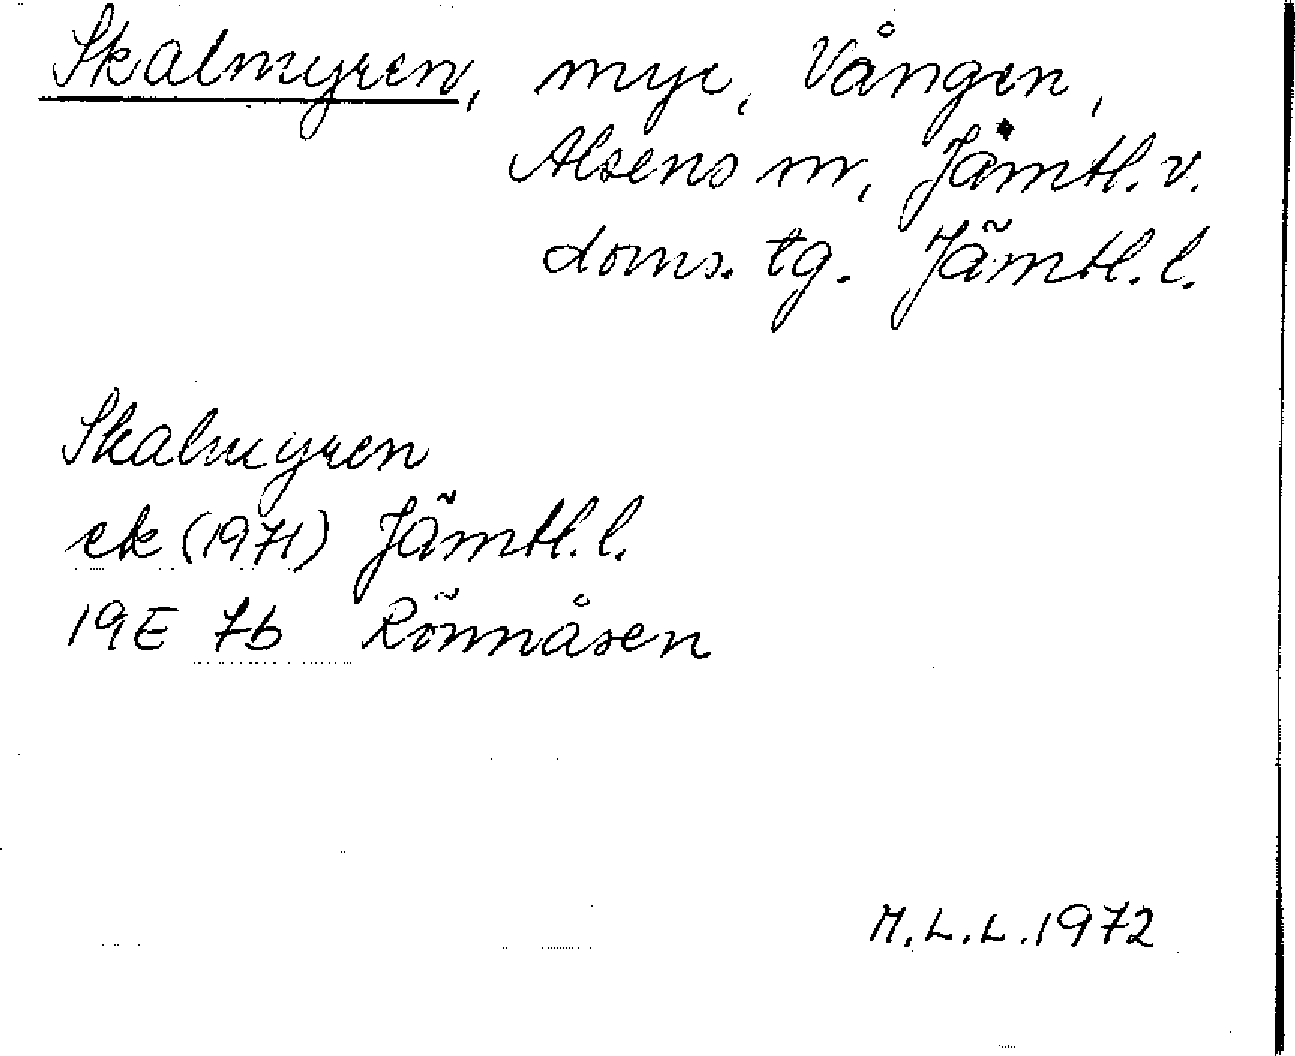 Skalmyren, myr, Vången,
Alsens sn, Jämtl. v.
doms. tg. Jämtl. l.
Skalmyren
ek (1971) Jämtl. l.
19E 7b Rönnåsen
M.L.L. 1972